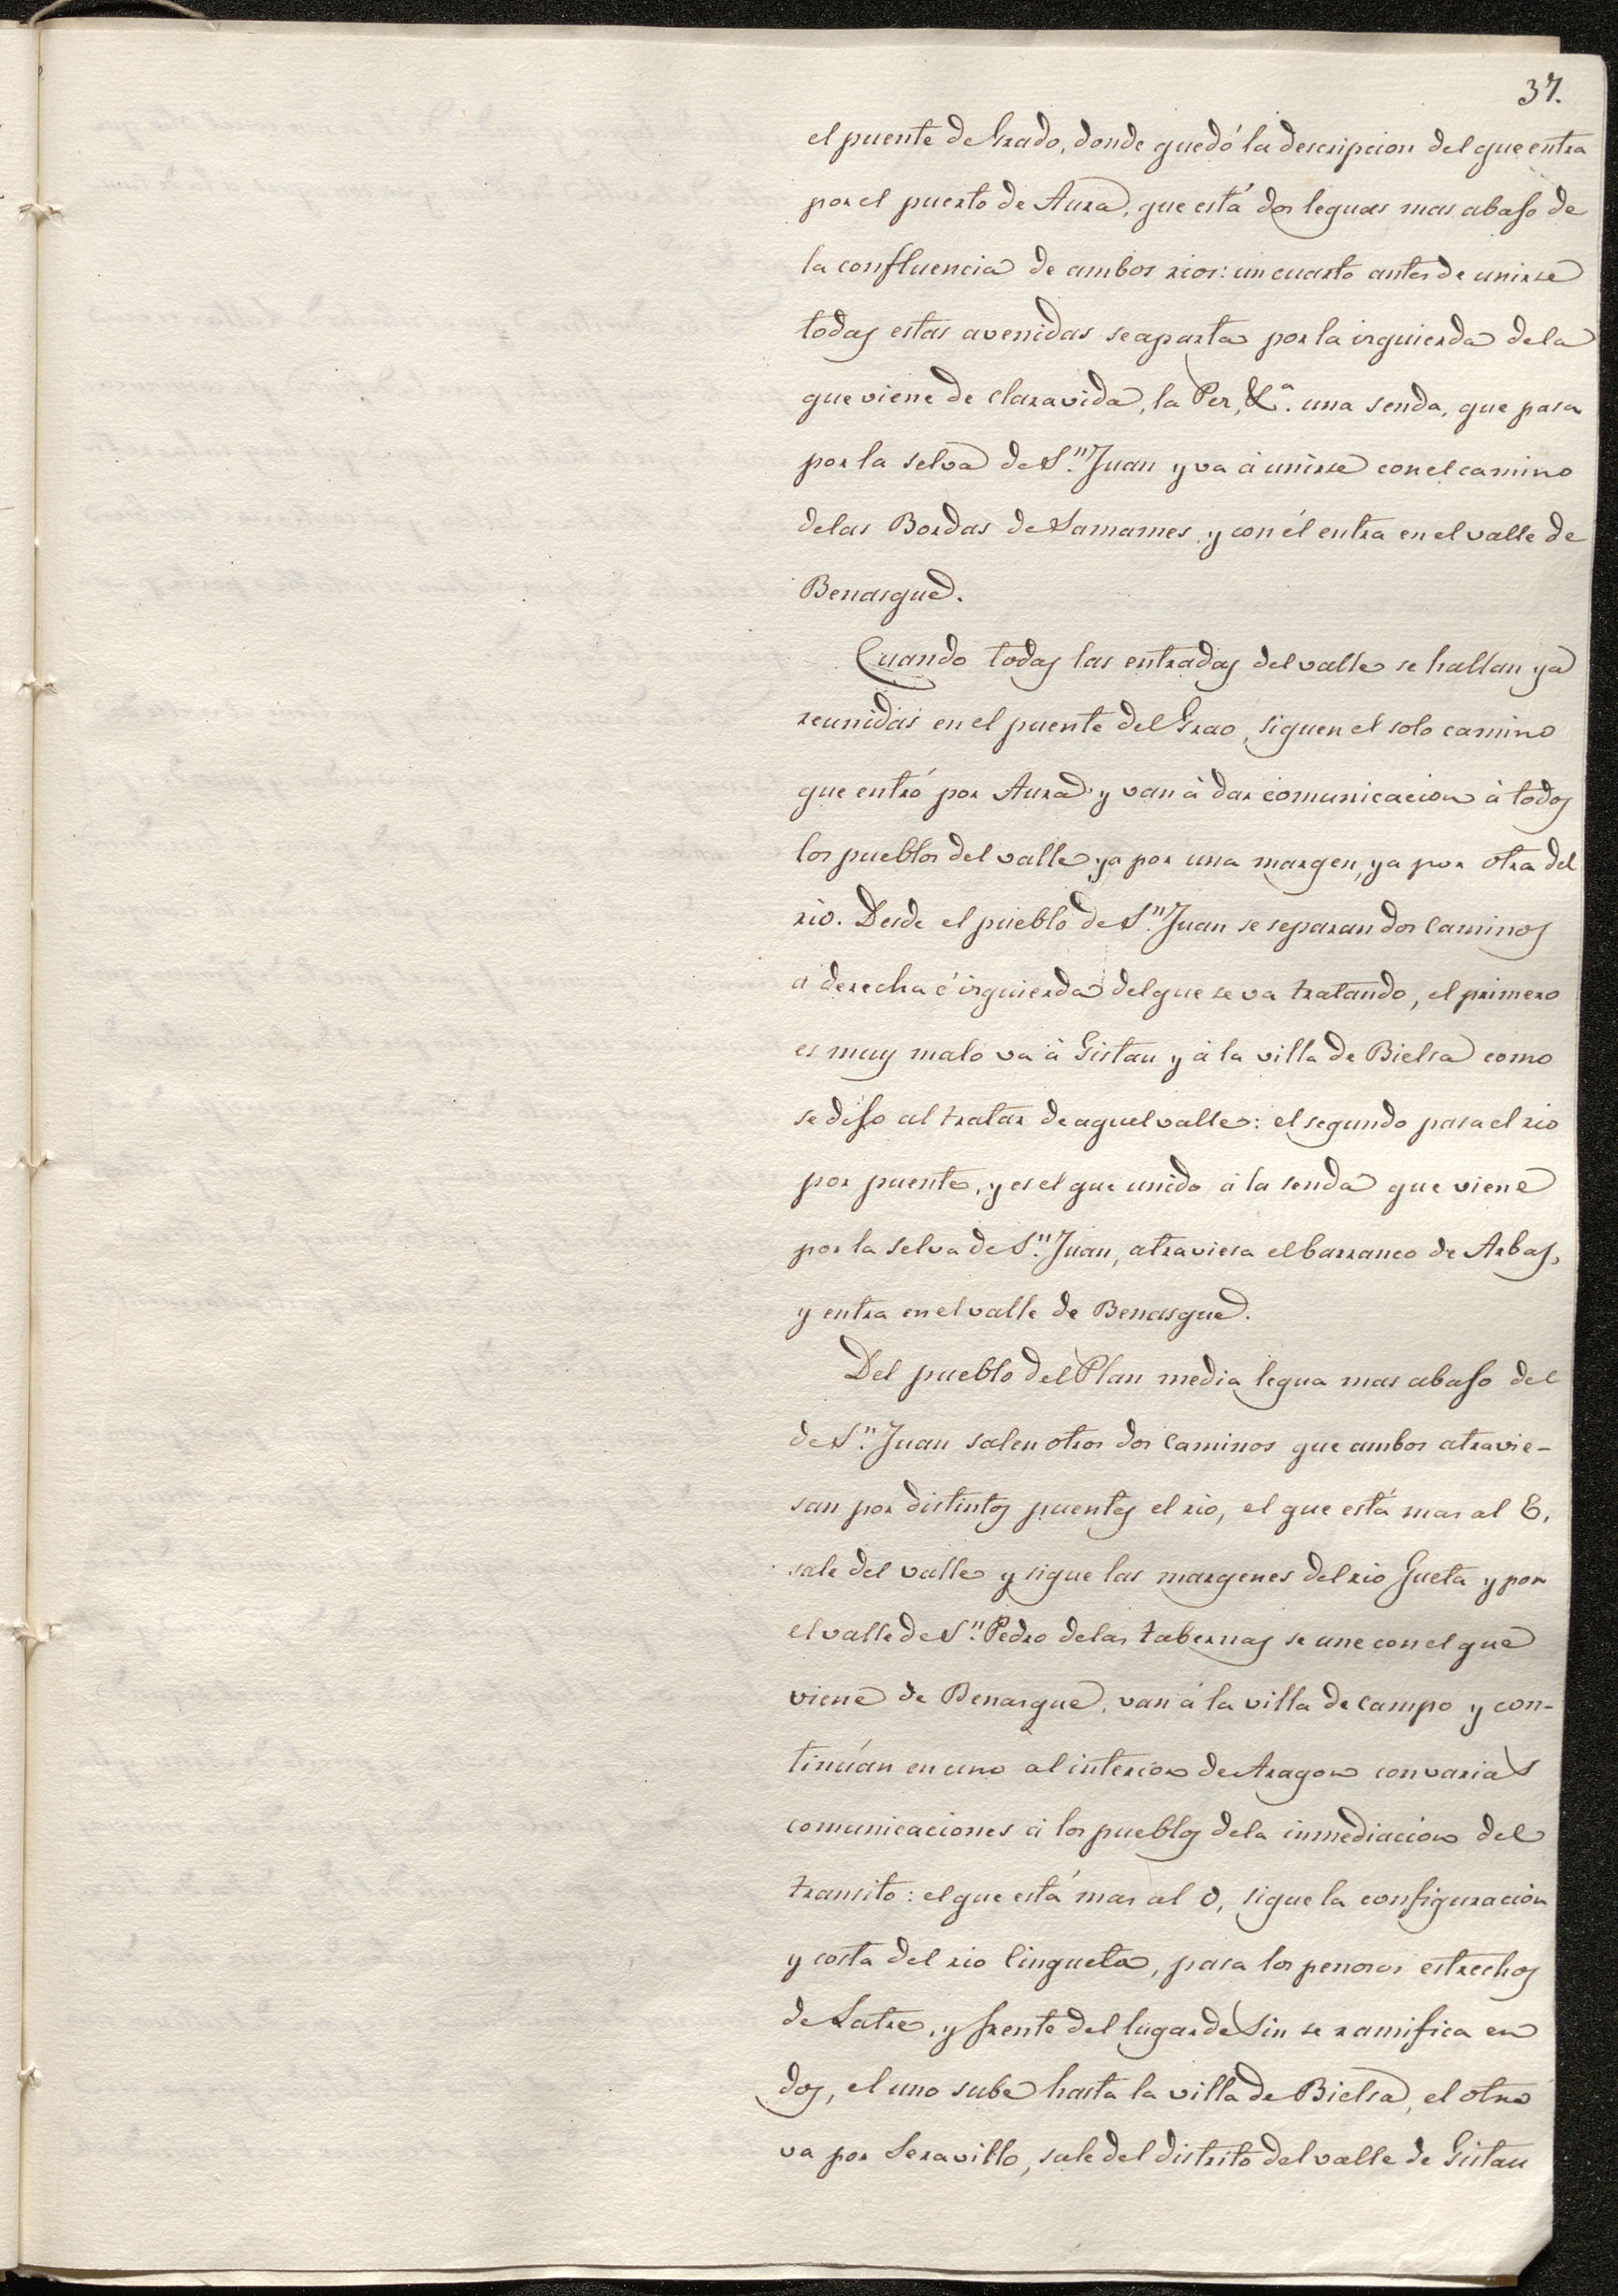 37.
el puente de Grado, donde quedó la descripcion del que entra
por el puerto de Aura, que está dos leguas mas abajo de
la confluencia de ambos rios: un cuarto antes de unirse
todas estas avenidas se aparta por la izquierda de la
que viene de Claravida, la Pez, &.ª una senda, que pasa
por la selva de S.n Juan y va à unirse con el camino
de las Bordas de Lamames y con él entra en el valle de
Benasque.
Cuando todas las entradas del valle se hallan ya
reunidas en el puente del Grao, siguen el solo camino
que entró por Aura y van à dar comunicacion à todos
los pueblos del valle ya por una margen, ya por otra del
rio. Desde el pueblo de S.n Juan se separan dos caminos
à derecha é izquierda del que se va tratando, el primero
es muy malo va à Gistau y à la villa de Bielsa como
se dijo al tratar de aquel valle: el segundo pasa el rio
por puente, y es el que unido à la senda que viene
por la selva de S.n Juan, atraviesa el barranco de Arbas,
y entra en el valle de Benasque.
Del pueblo del Plan media legua mas abajo del
de S.n Juan salen otros dos caminos que ambos atravie-
san por distintos puentes el rio, el que está mas al E,
sale del valle y sigue las margenes del rio Gueta y por
el valle de S.n Pedro de las tabernas se une con el que
viene de Benasque, van à la villa de Campo y con-
tinúan en uno al interior de Aragon con varias
comunicaciones à los pueblos de la inmediacion del
transito: el que está mas al O, sigue la configuracion
y costa del rio Cinqueta, pasa los penosos estrechos
de Latre, y frente del lugar de Sin se ramifica en
dos, el uno sube hasta la villa de Bielsa, el otro
va por Seravillo, sale del distrito del valle de Gistau